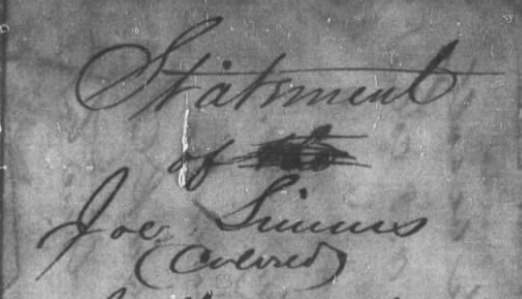 Statement
of
Joe Simms
(Colored)